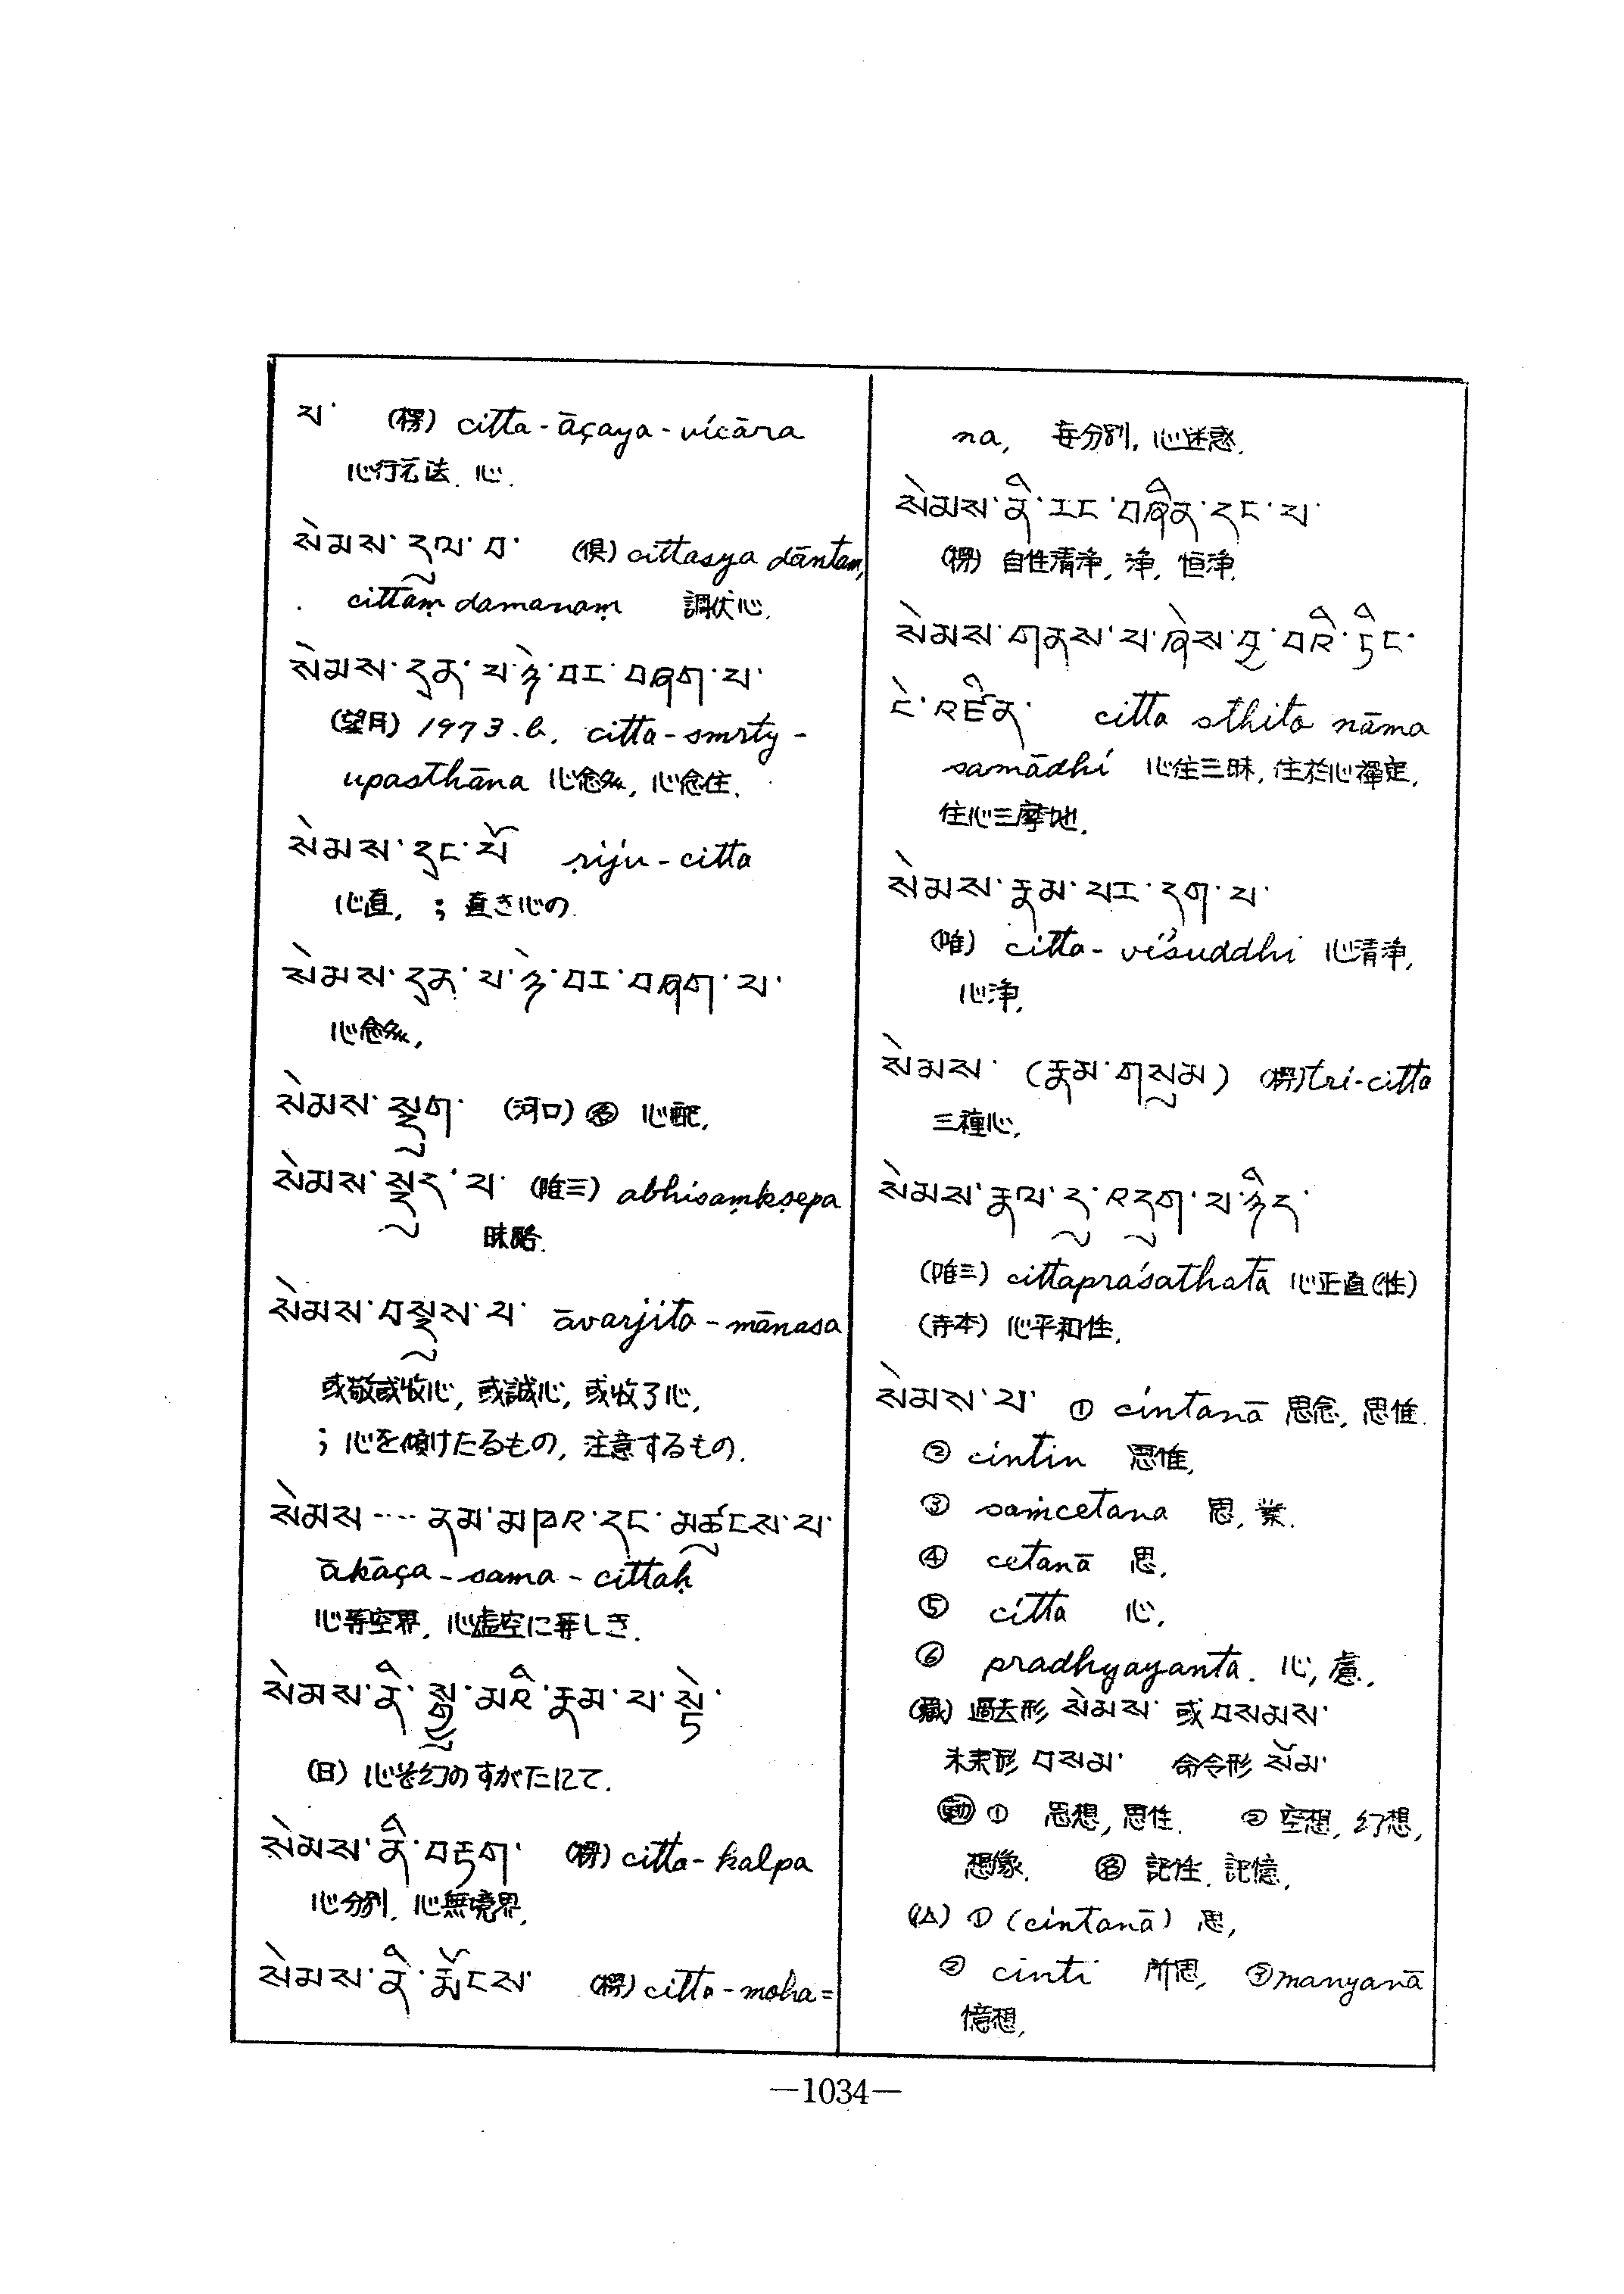 པ་ (楞) citta-āçaya-vicāra
心行云法. 心.
སེམས་དུལ་བ་ (倶) cittasya dāntam,
cittaṃ damanaṃ 調伏心.
སེམས་དྲན་པ་ཉེ་བར་བཞག་པ་
(望月) 1973.b. citta-smrty-
upasthāna 心念処, 心念住.
སེམས་དྲང་པོ ṛiju-citta
心直, ; 直き心の.
སེམས་དྲན་པ་ཉེ་བར་བཞག་པ་
心念処,
སེམས་སྡུག་ (河口) 名 心配,
སེམས་སྡུད་པ་ (唯三) abhisaṃkṣepa
昧略.
སེམས་བསྡུས་པ་ āvarjita-mānasa
或敬或收心, 或誠心, 或收了心,
; 心を傾けたるもの, 注意するもの.
སེམས····ནམ་མཁའ་དང་མཚུངས་པ་
ākāça-sama-cittaḥ
心等空界, 心虚空に等しき.
སེམས་ནི་སྒྱུ་མའི་རྣམ་པ་སྟེ་
(日) 心皆幻のすがたにて.
སེམས་ནི་བརྟག་ (楞) citta-kalpa
心分別, 心無境界,
སེམས་ནི་རྨོངས་ (楞) citta-moha=
na, 妄分別, 心迷惑.
སེམས་ནི་རང་བཞིན་དང་པ་
(楞) 自性清浄, 浄, 恒浄.
སེམས་གནས་པ་ཞེས་བྱ་བའི་ཏིང་
ངེ་འཛིན་ citta sthita nāma
samādhi 心住三昧, 住於心禪定,
住心三摩地.
སེམས་རྣམ་པར་དག་པ་
(唯) citta-viśuddhi 心清浄,
心浄,
སེམས་ (རྣམ་གསུམ) (楞) tri-citta
三種心,
སེམས་རྣལ་དུ་འདུག་པ་ཉིད་
(唯三) cittapraśathatā 心正直(性)
(寺本) 心平和性,
སེམས་པ་ ① cintanā 思念, 思惟.
② cintin 思惟,
③ saṁcetana 思, 業.
④ cetanā 思,
⑤ citta 心,
⑥ pradhyayanta. 心, 慮.
(蔵) 過去形 སེམས་ 或 བསམས་
未来形 བསམ་ 命令形 སོམ་
動 ① 思想, 思性. ② 空想, 幻想,
想像. 名 記性, 記憶,
① (cintanā) 思,
② cinti 所思, ③ manyanā
憶想,
—1034—